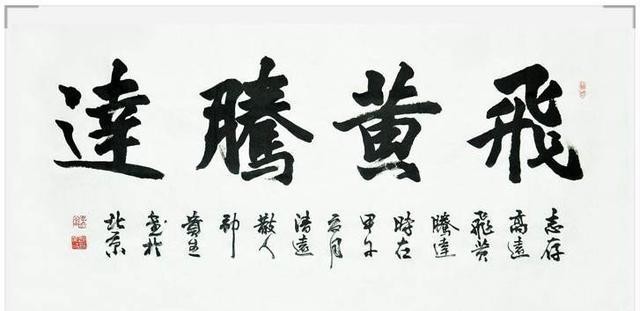 飛黄騰達
志存
高遠
飛黄
騰達
時在
甲午
春月
清遠
散人
祁
貴生
書於
北京